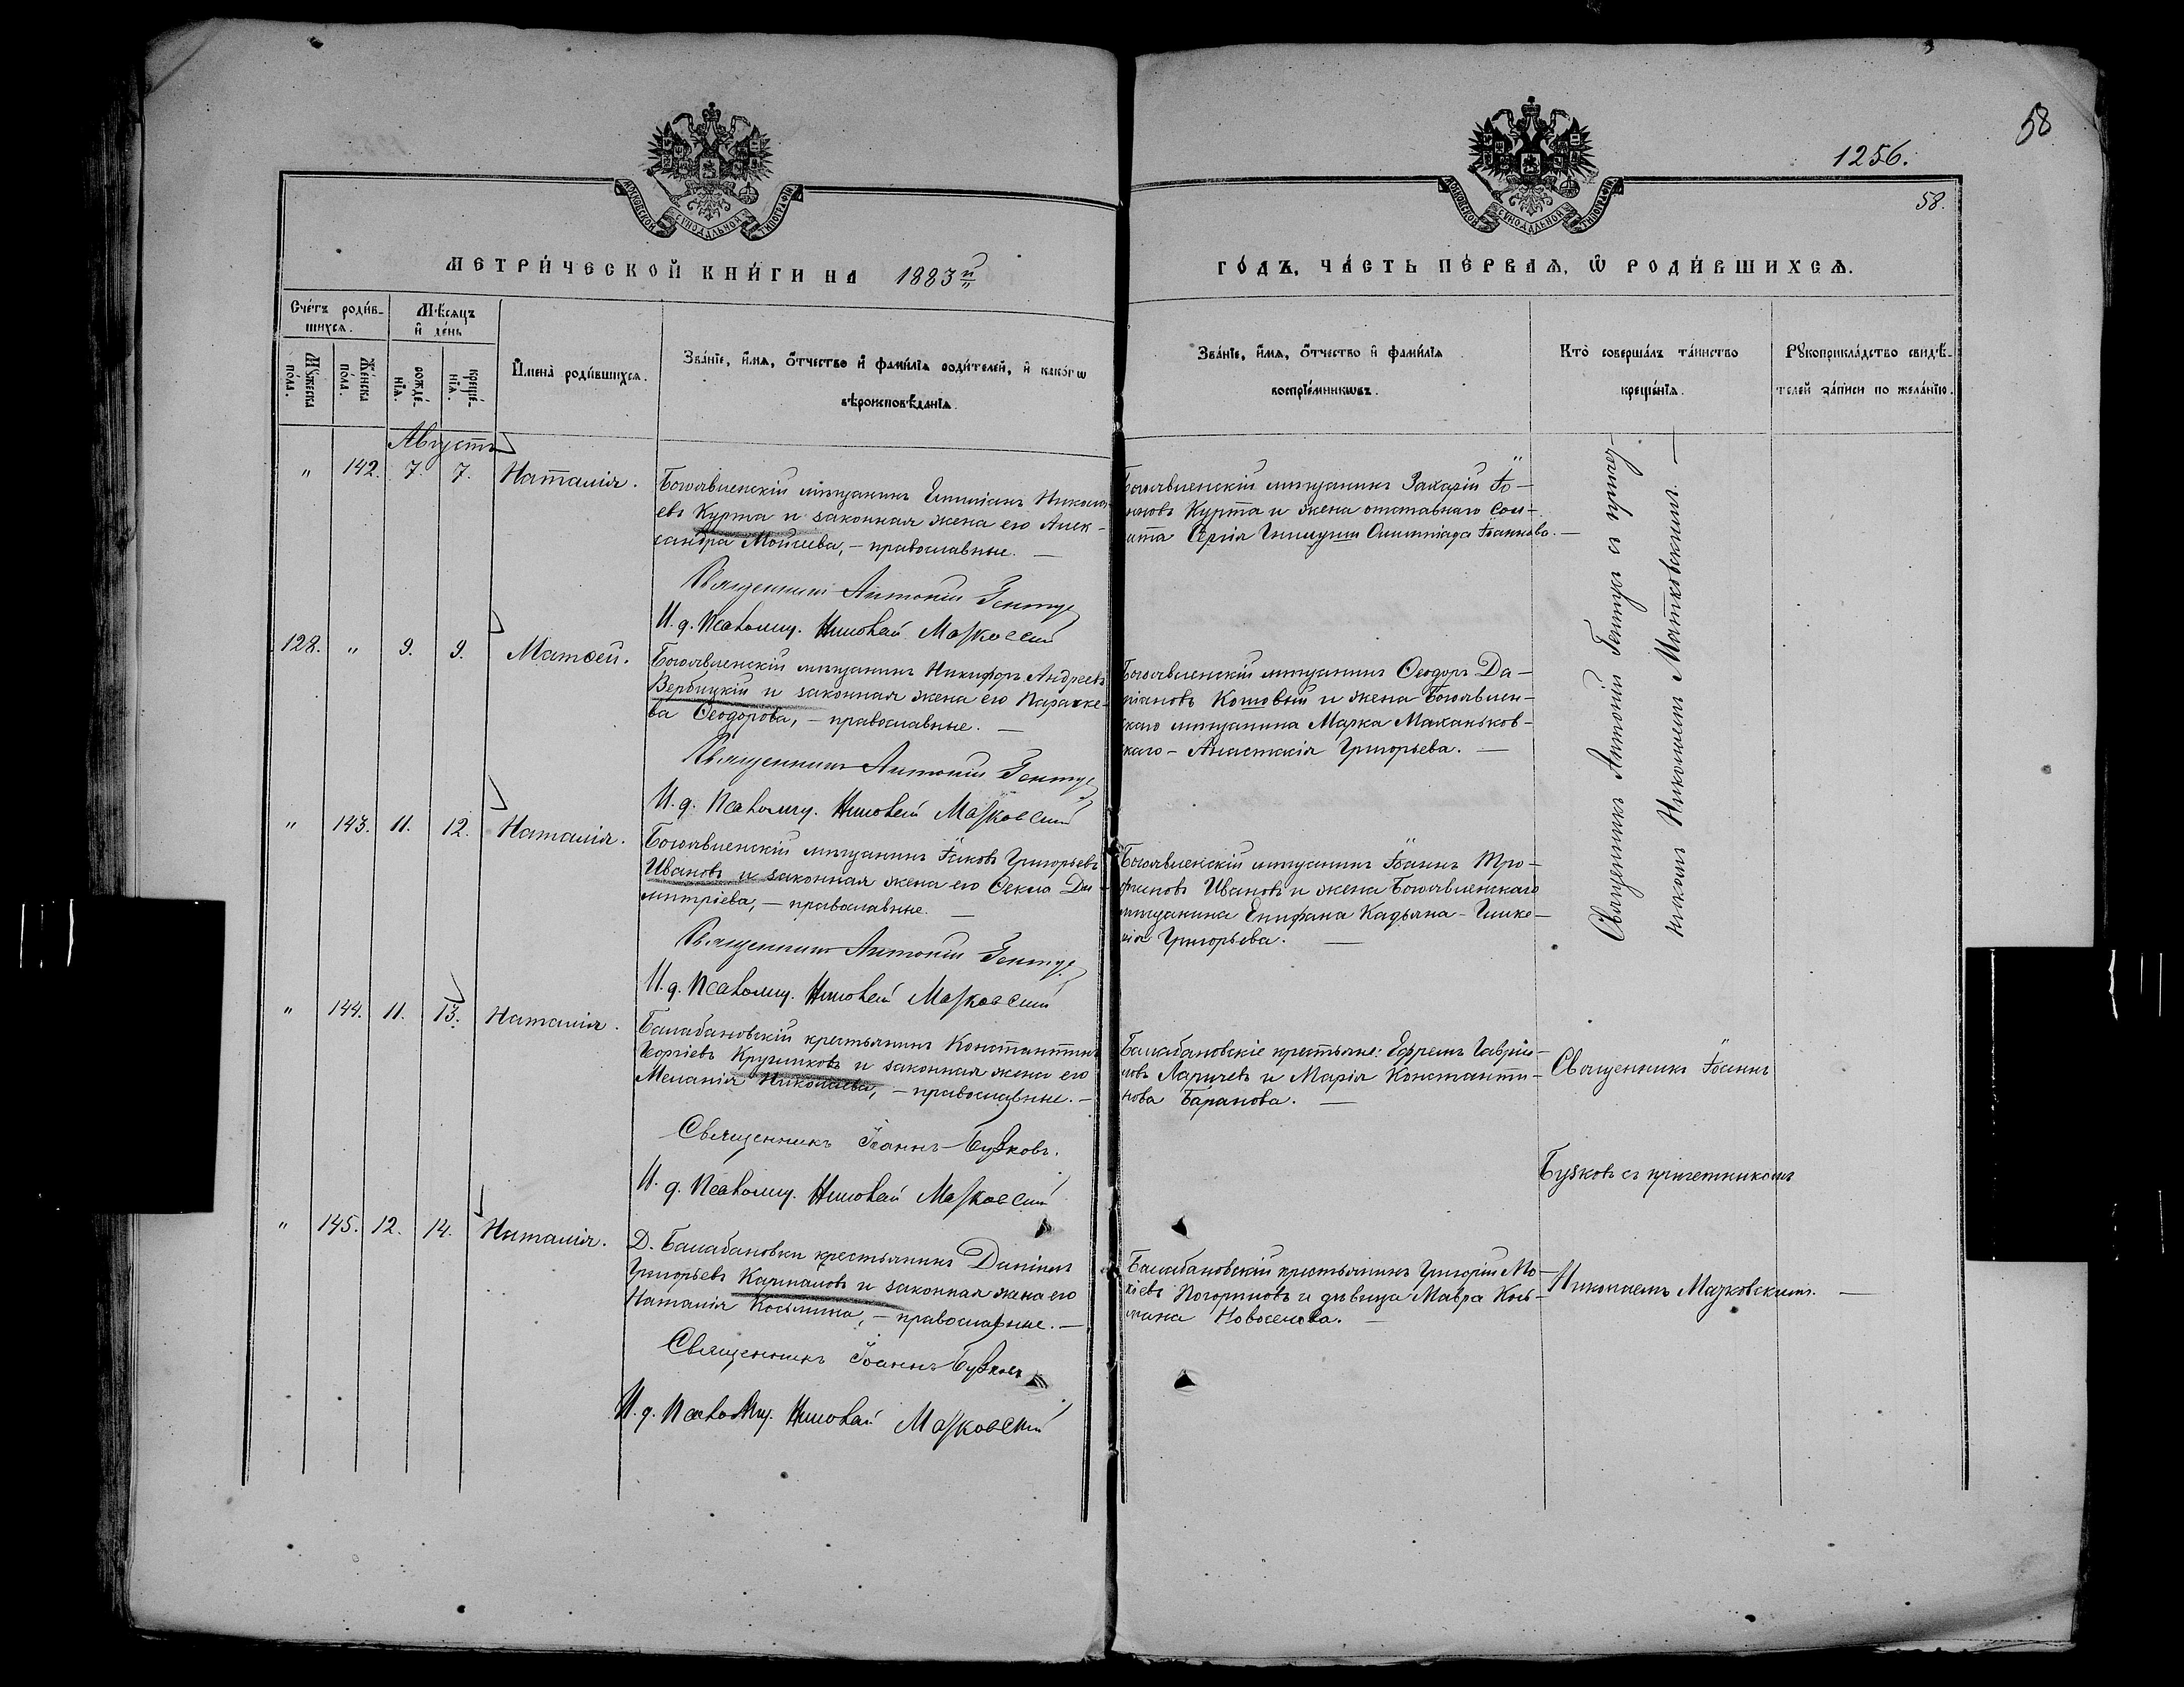 58
1256.
58.
МОСКОВСКОЙ СѴНОДАЛЬНОЙ ТИПОГРАФІИ
МОСКОВСКОЙ СѴНОДАЛЬНОЙ ТИПОГРАФІИ
МЕТРИ́ЧЕСКОЙ КНИ́ГИ НА 1883й
ГО́ДЪ, ЧА́СТЬ ПЕ́РВАѦ, Ѡ РОДИ́ВШИХСѦ.
Сче́тъ роди́в-
шихсѧ.
Мѣ́сѧцъ
и҆ де́нь
Мꙋ́жеска
по́ла.
Же́нска
по́ла.
рожде́-
нїѧ.
креще́-
нїѧ.
И҆мена̀ роди́вшихсѧ.
Зва́нїе, и҆́мѧ, ѻ҆́тчество и҆ фами́лїѧ роди́телей, и҆ како́гѡ
вѣроисповѣ́данїѧ.
Зва́нїе, и҆́мѧ, ѻ҆́тчество и҆ фами́лїѧ
воспрїе́мникѡвъ.
Кто̀ соверша́лъ та́инство
креще́нїѧ.
Рꙋкоприкла́дство свидѣ́-
телей за́писи по жела́нїю.
Августъ
" 142. 7. 7. Наталія.
Богоявленскій мѣщанинъ Николо-
евъ Курта и законная жена его Алек-
сандра Моисеева, – православные. —
Священникъ Антоній
И. д. Псаломщ. Николай Мазковскій
Богоявленскій мѣщанинъ Захарій
Курта и жена отставнаго сол-
дата Сергія
128. " 9. 9. Матѳей.
Богоявленскій мѣщанинъ Никифоръ Андреевъ
Вербицкій и законная жена его Параске-
ва Ѳеодорова, – православные. —
Священникъ Антоній
И. д. Псаломщ. Николай Мазковскій
Богоявленскій мѣщанинъ Ѳеодоръ Да-
міановъ Котовый и жена Богоявлен-
скаго мѣщанина Марка Маханьков-
скаго – Анастасія Григорьева. —
" 143. 11. 12. Наталія.
Богоявленскій мѣщанинъ Іаковъ Григорьевъ
Ивановъ и законная жена его Ѳекла Ди-
митріева, – православные. —
Священникъ Антоній
И. д. Псаломщ. Николай Мазковскій
Богоявленскій мѣщанинъ Іоаннъ Тро-
фимовъ Ивановъ и жена Богоявленскаго
мѣщанина Епифана Кадьяна –
Григорьева. —
Священникъ Антоній съ причет-
никомъ Николаемъ Мазковскимъ. —
" 144. 11. 13. Наталія.
Балабановскій крестьянинъ Константинъ
Георгіевъ Кругликовъ и законная жена его
Меланія Николаева, – православные. —
Священникъ Іоаннъ Бузковъ.
И. д. Псаломщ. Николай Мазковскій
Балабановскіе крестьяне: Ефремъ Гаврій-
ловъ Ларичевъ и Марія Константи-
нова Баранова. —
Священникъ Іоаннъ
Бузковъ съ причетникомъ
" 145. 12. 14. Наталія.
Д. Балабановки крестьянинъ Даніилъ
Григорьевъ Карталовъ и законная жена его
Наталія Косьмина, – православные. —
Священникъ Іоаннъ Бузковъ
И. д. Псаломщ. Николай Мазковскій
Балабановскій крестьянинъ Григорій Мо-
кіевъ и дѣвица Мавра Кось-
мина Новоселова. —
Николаемъ Мазковскимъ. —